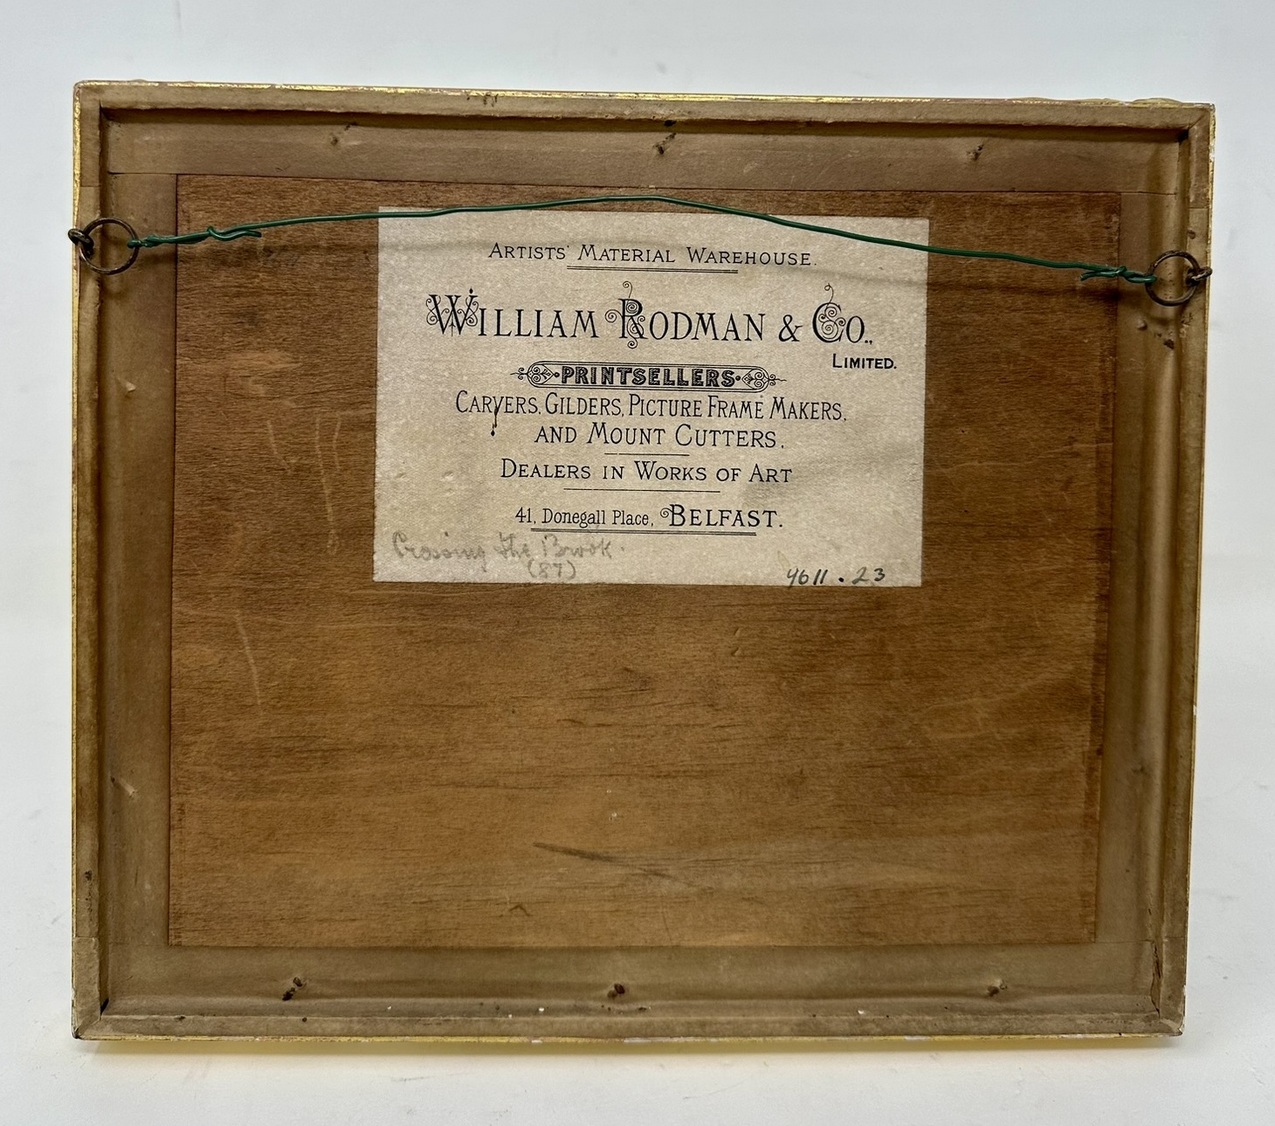 Artists' Material Warehouse.
William Rodman & Co.,
Limited.
PRINTSELLERS
Carvers, Gilders, Picture Frame Makers,
and Mount Cutters.
Dealers in Works of Art
41, Donegall Place, Belfast.
Crossing the Brook.
(87)
4611.23